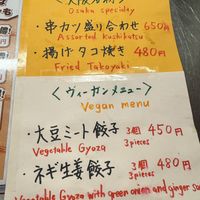 大阪名物
Osaka specialty
・串カツ盛り合わせ 650円
Assorted kushikatsu
・揚げタコ焼き 480円
Fried Takoyaki
<ヴィーガンメニュー>
Vegan menu
・大豆ミート餃子 3個 450円
Vegetable Gyoza 3pieces
・ネギ生姜餃子 3個 480円
3pieces
Vegetable Gyoza with green onion and ginger